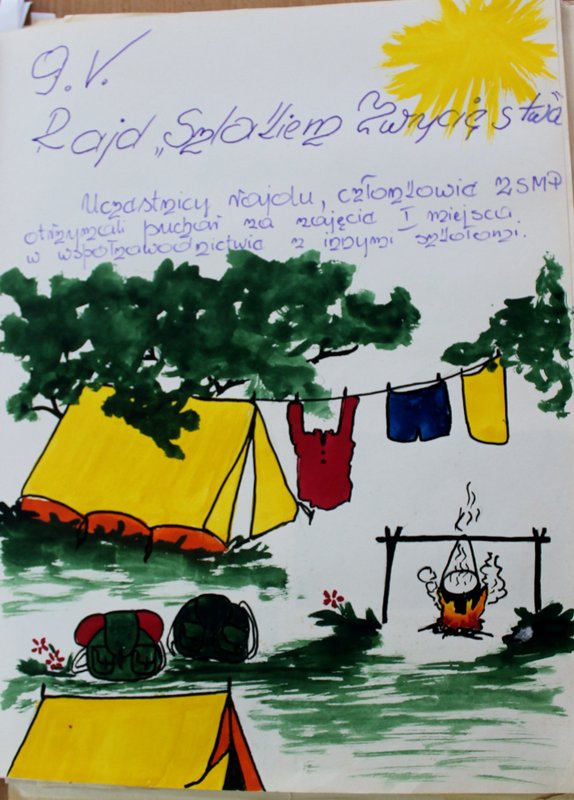 9.V.
Rajd „Szlakiem Zwycięstwa"
Uczestnicy rajdu, członkowie ZSMP
otrzymali puchar za zajęcie I miejsca
w współzawodnictwie z innymi szkołami.